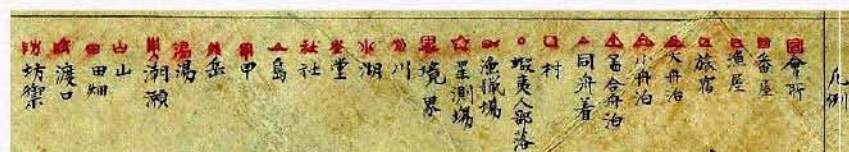 凡例
會所
番屋
漁屋
旅宿
大舟泊
小舟泊
舟泊
同舟着
村
蝦夷人部落
漁猟場
星測場
境界
川
湖
堂
社
島
甲
岳
湯
潮瀬
山
田畑
渡口
坊禦